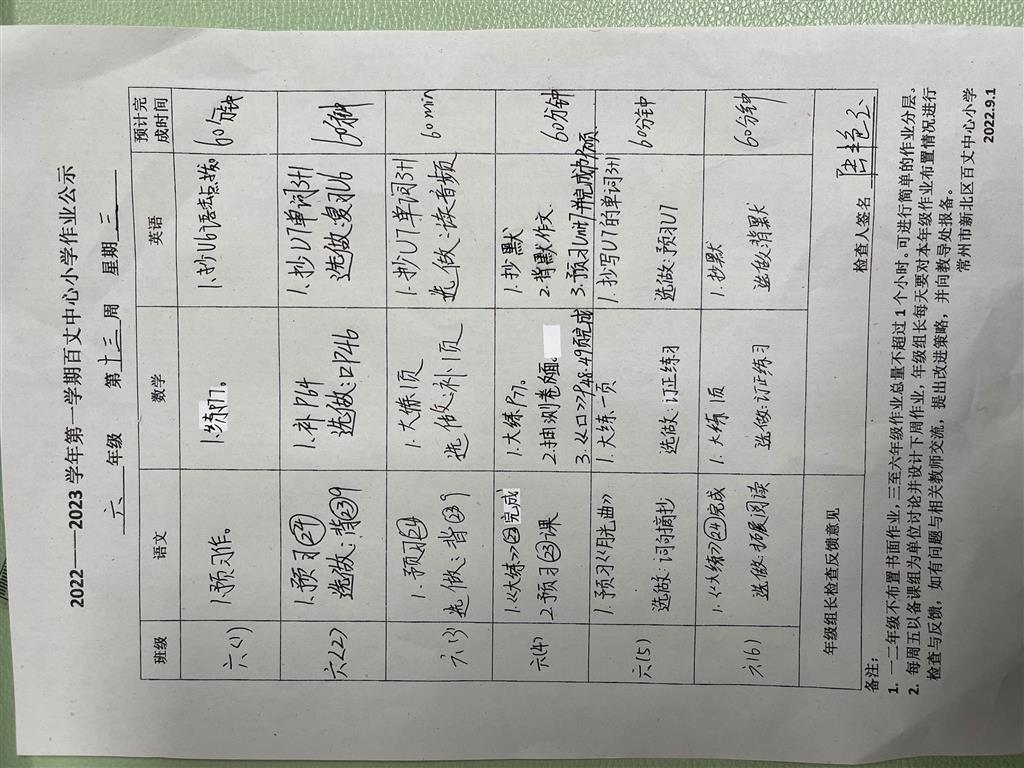 2022——2023 学年第一学期百丈中心小学作业公示
六 年级 第 十三 周 星期 三
班级 语文 数学 英语 预计完成时间
六(1) 1.预习作。 1.练P7。 60分钟
六(2) 1.预习㉔ 1.补P64 1.抄U7单词3+1 60分钟
选做:背㉓9 选做:口P46 选做:复习U6
六(3) 1.预习㉔ 1.大练1页 1.抄U7单词3+1 60min
选做:背㉓9 选做:补1页 选做:读音频
六(4) 1.《大练》㉓完成 1.大练P7。 1.抄默 60分钟
2.预习㉓课 2.抽测卷 2.背默作文.
3.《口》P48.49页完成 3.预习Unit7并完成
六(5) 1.预习《月光曲》 1.大练一页 1.抄写U7的单词3+1 60分钟
选做:词句摘抄 选做:订正练习 选做:预习U7
六(6) 1.《大练》㉔完成 1.大练1页 1.抄默 60分钟
选做:拓展阅读 选做:订正练习 选做:背默
年级组长检查反馈意见 检查人签名
备注:
1. 一二年级不布置书面作业,三至六年级作业总量不超过 1 个小时。可进行简单的作业分层。
2. 每周五以备课组为单位讨论并设计下周作业,年级组长每天要对本年级作业布置情况进行
检查与反馈,如有问题与相关教师交流,提出改进策略,并向教导处报备。
常州市新北区百丈中心小学
2022.9.1